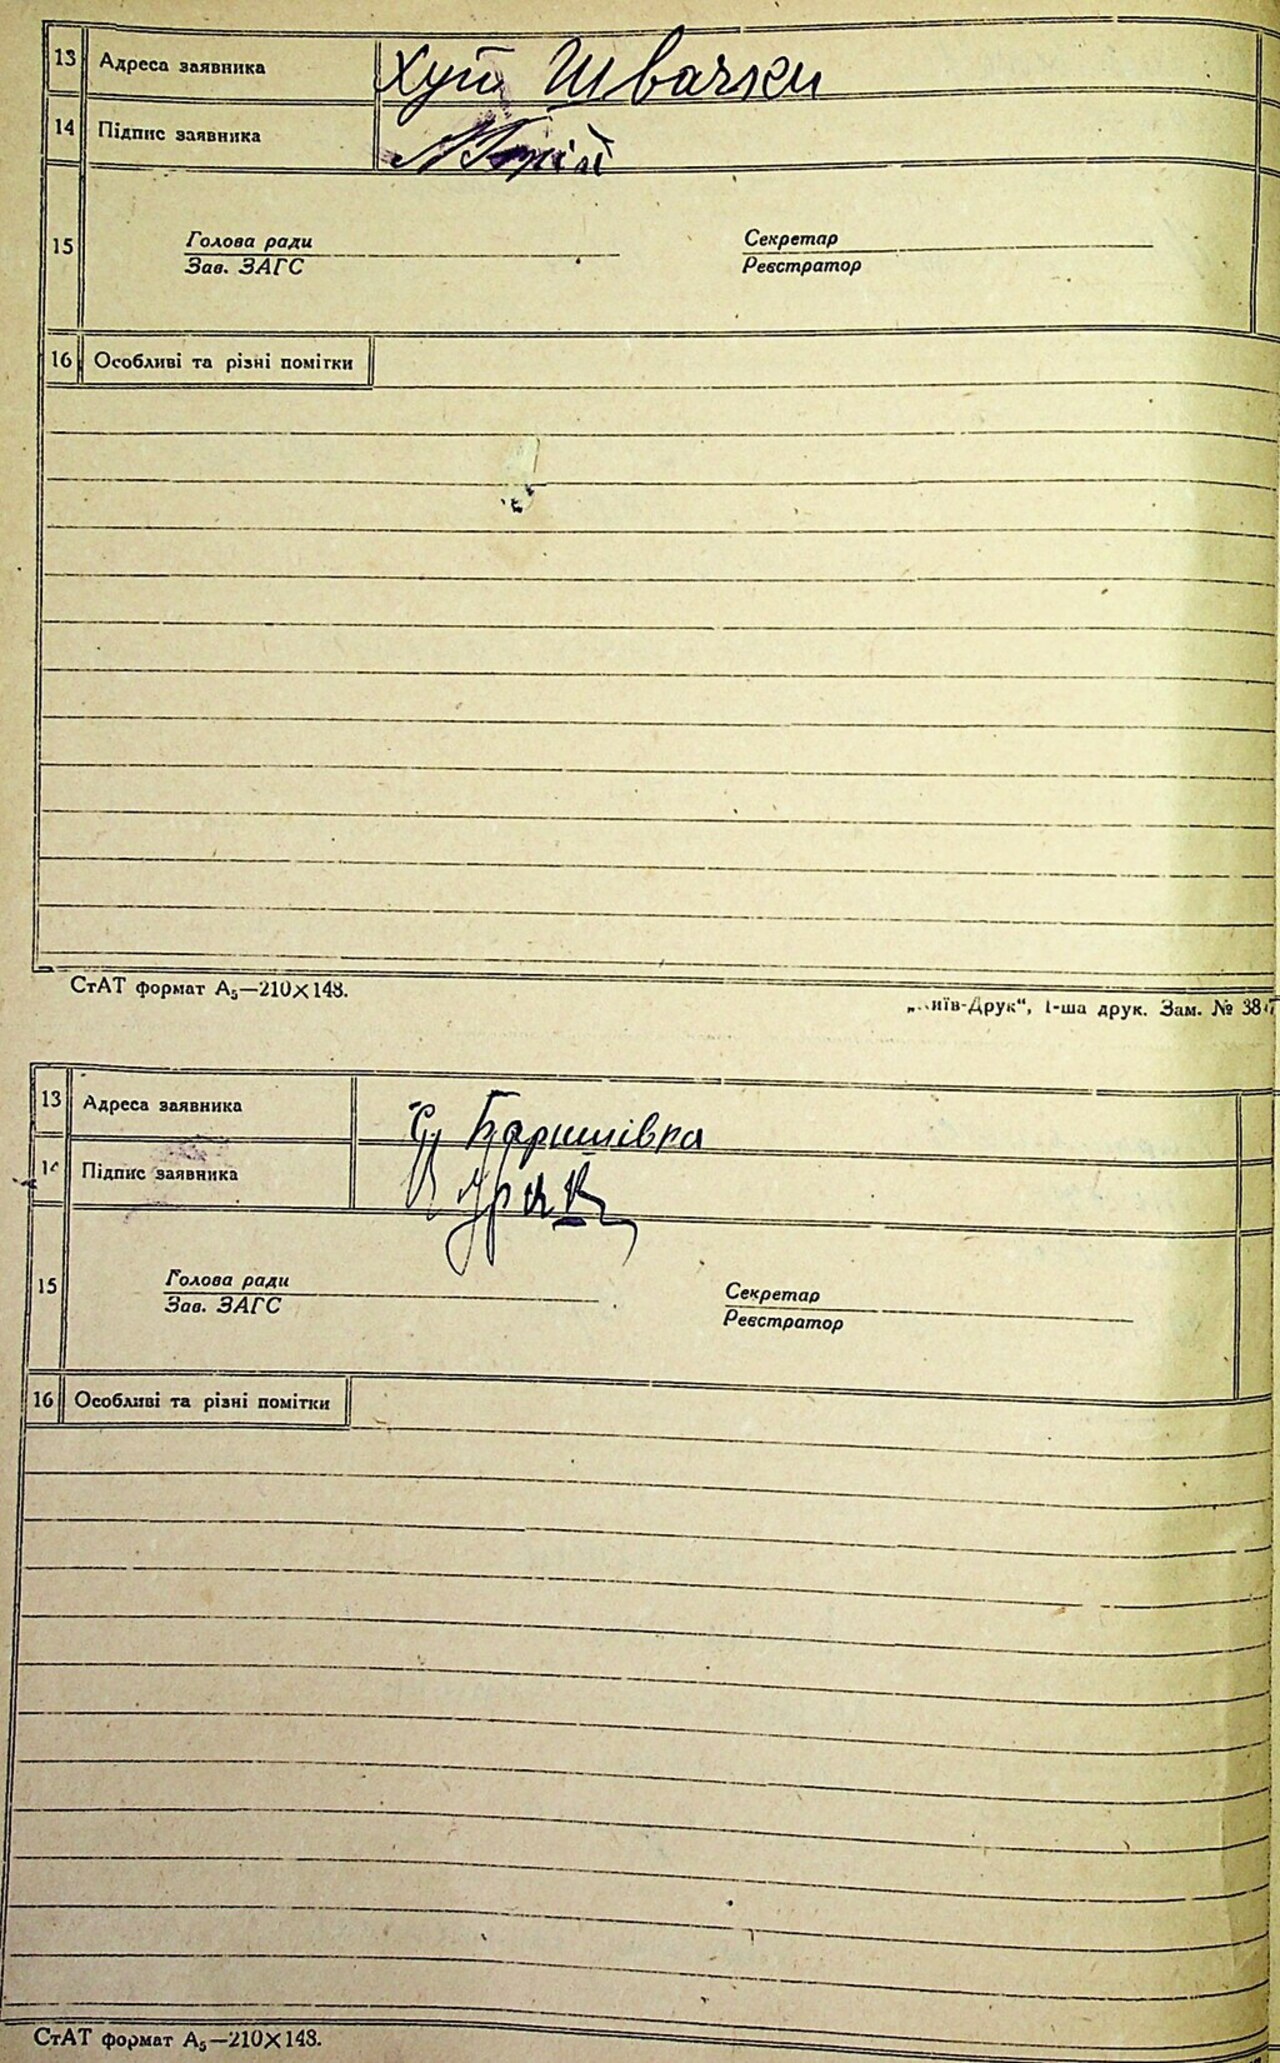 13 Адреса заявника Хут Швачки
14 Підпис заявника
15 Голова ради Секретар
Зав. ЗАГС Реєстратор
16 Особливі та різні помітки
СтАТ формат А₅—210×148.
„Київ-Друк“, 1-ша друк. Зам. №
13 Адреса заявника С. Баришівка
14 Підпис заявника
15 Голова ради Секретар
Зав. ЗАГС Реєстратор
16 Особливі та різні помітки
СтАТ формат А₅—210×148.